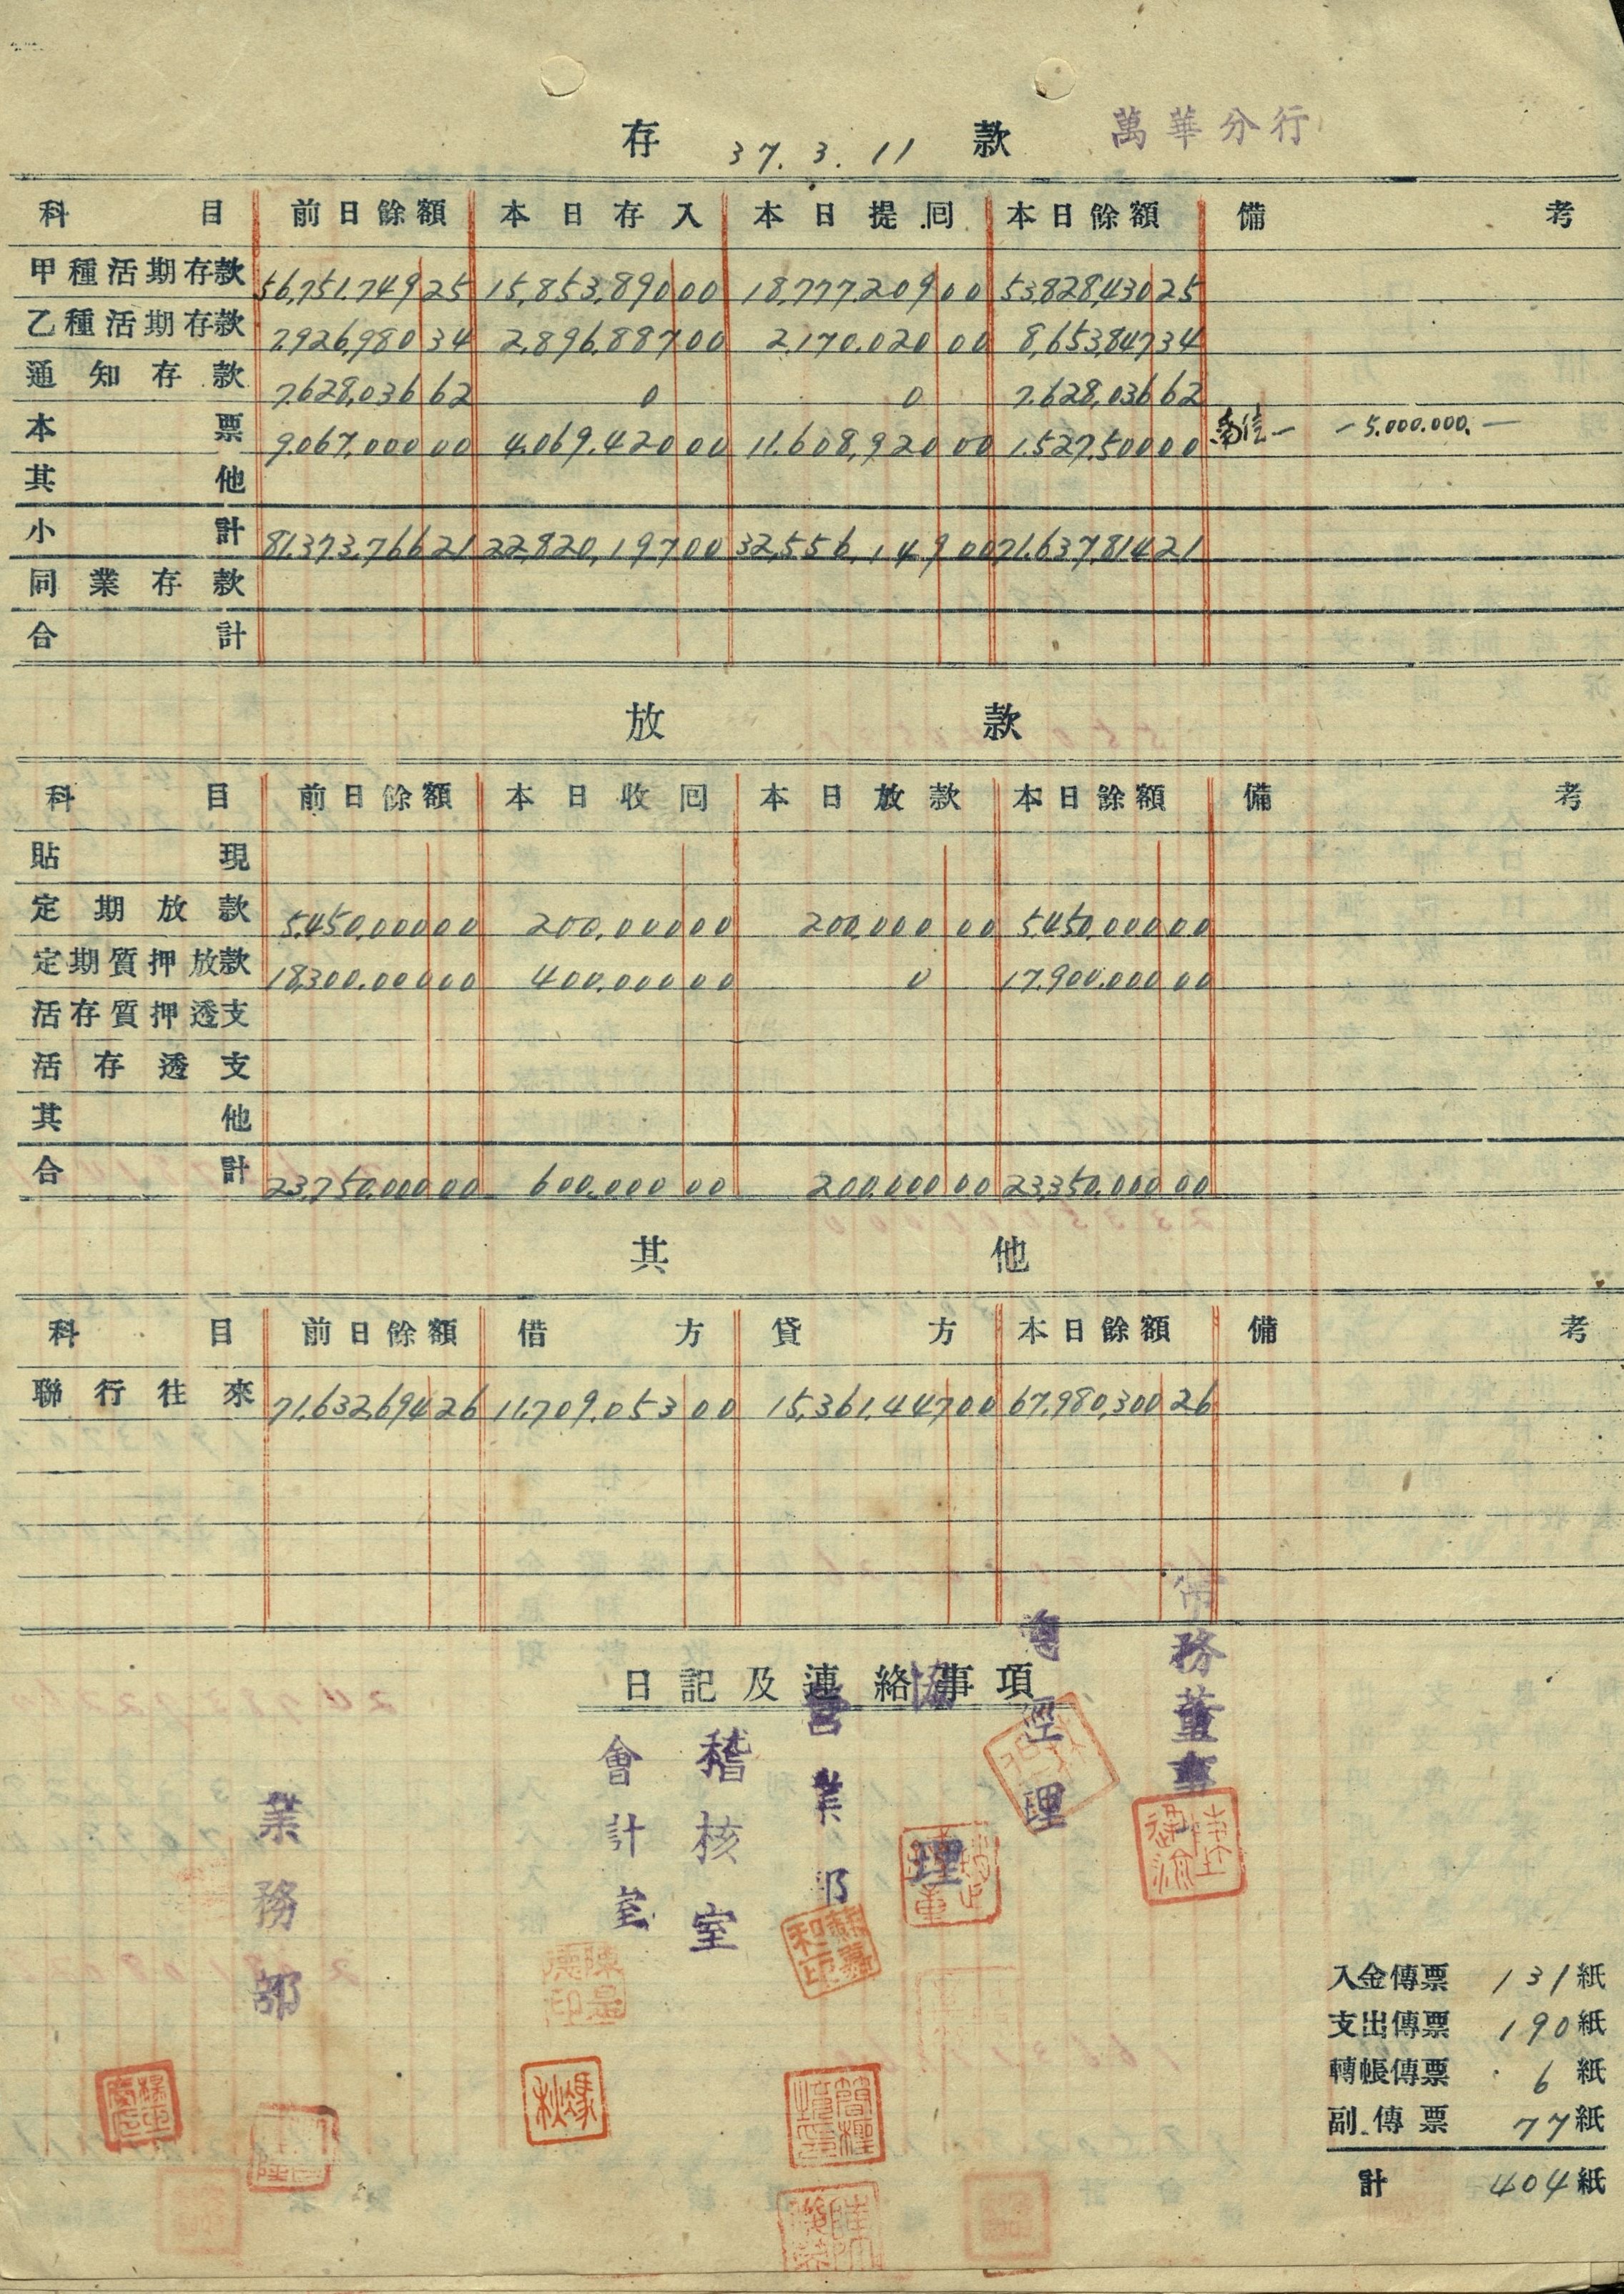 萬華分行
存 37. 3. 11 款
科目 前日餘額 本日存入 本日提囘 本日餘額 備考
甲種活期存款 56,751,749 25 15,853,890 00 18,777,209 00 53,828,430 25
乙種活期存款 7,926,980 34 2,896,887 00 2,170,020 00 8,653,847 34
通知存款 7,628,036 62 0 0 7,628,036 62
本票 9,067,000 00 4,069,420 00 11,608,920 00 1,527,500 00 5,000,000.
其他
小計 81,373,766 21 22,820,197 00 32,556,149 00 71,637,814 21
同業存款
合計
放款
科目 前日餘額 本日收囘 本日放款 本日餘額 備考
貼現
定期放款 5,450,000 00 200,000 00 200,000 00 5,450,000 00
定期質押放款 18,300,000 00 400,000 00 0 17,900,000 00
活存質押透支
活存透支
其他
合計 23,750,000 00 600,000 00 200,000 00 23,350,000 00
其他
科目 前日餘額 借方 貸方 本日餘額 備考
聯行往來 71,632,694 26 11,709,053 00 15,361,447 00 67,980,300 26
日記及連絡事項
常務董事
經理
協理
營業部
稽核室
會計室
業務部
入金傳票 131紙
支出傳票 190紙
轉帳傳票 6紙
副傳票 77紙
計 404紙